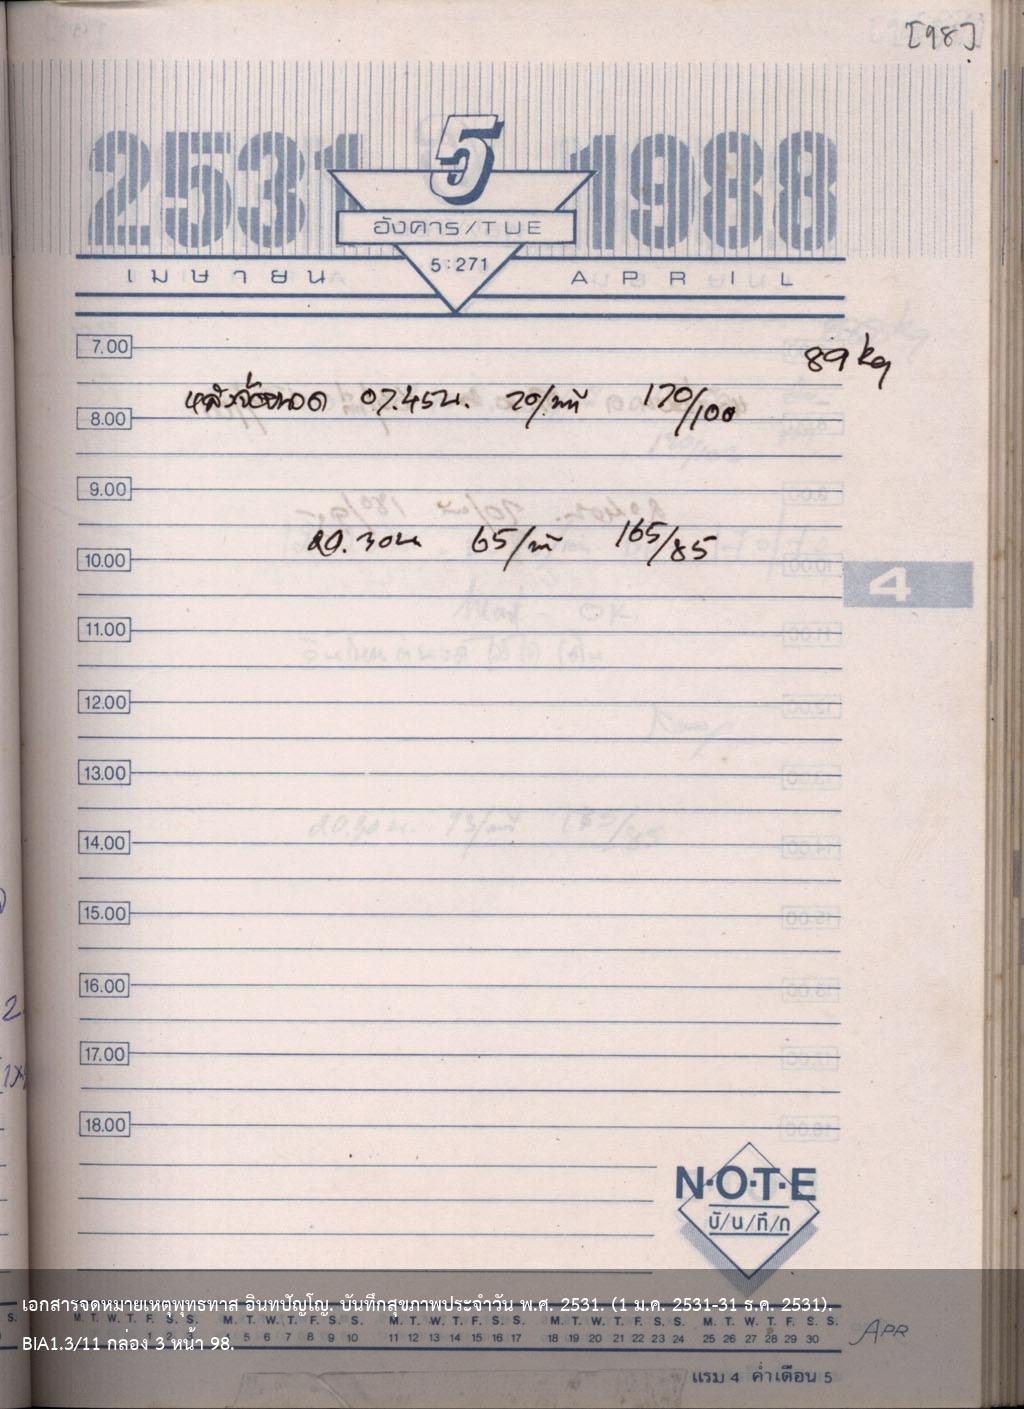 [98]
2531 5 1988
อังคาร/TUE
5:271
เมษายน APRIL
7.00
89 kg
หลังจ้อยนอด 07.45น. 70/นาที 170/100
8.00
9.00
20.30น 65/นาที 165/85
10.00
4
11.00
12.00
13.00
14.00
15.00
16.00
17.00
18.00
N·O·T·E
บั/น/ทึ/ก
เอกสารจดหมายเหตุพุทธทาส อินทปัญโญ. บันทึกสุขภาพประจำวัน พ.ศ. 2531. (1 ม.ค. 2531-31 ธ.ค. 2531).
M. T. W. T. F. S. S. M. T. W. T. F. S. S. M. T. W. T. F. S. S. M. T. W. T. F. S. S. M. T. W. T. F. S. S.
1 2 3 4 5 6 7 8 9 10 11 12 13 14 15 16 17 18 19 20 21 22 23 24 25 26 27 28 29 30
APR
BIA1.3/11 กล่อง 3 หน้า 98.
แรม 4 ค่ำเดือน 5